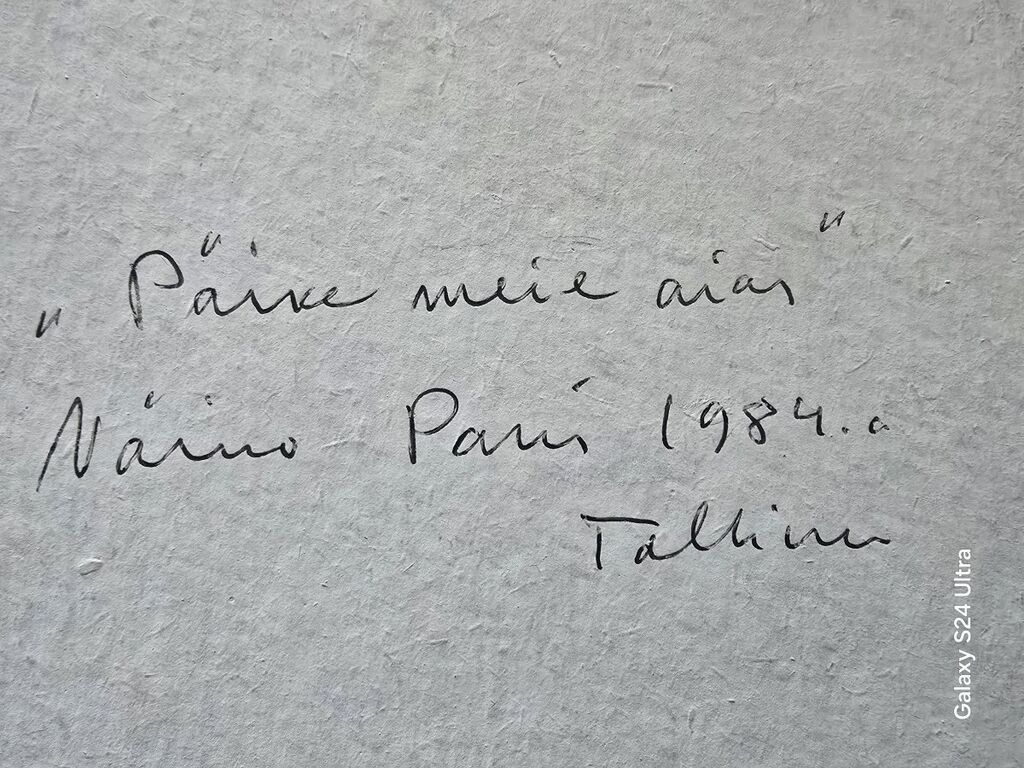 „Päike meie aias"
Väino Paris 1984.a
Tallinn
Galaxy S24 Ultra